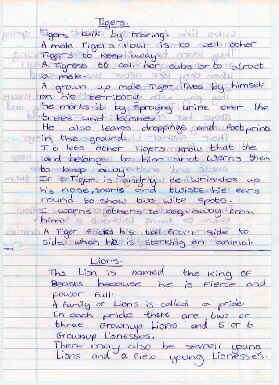 Tigers.
Tigers talk by roaring.
A male Tigers Roar is to tell other
Tigers to keep away.
A Tigress to call her cubs or to atract
a male.
A grown up male Tiger lives by himself
on his territory.
He marks it by spraying urine over the
trees and bushes.
He also leaves droppings and footprints
in the ground.
other tigers know that the
land belongs to him and warns them
to keep away.
If a Tiger is angry he wrinkles up
his nose, snarls and twists his ears
round to show two wite spots.
I warns others to keep away from
him.
A Tiger flicks his tail from side to
side when he is stalking an animal.
Lions.
The Lion is named the King of
Beasts because he is fierce and
power full.
A family of Lions is called a pride
In each pride there are two or
three grownup Lions and 5 or 6
Grownup Lionesses.
There may also be several young
Lions and a few young Lionesses.